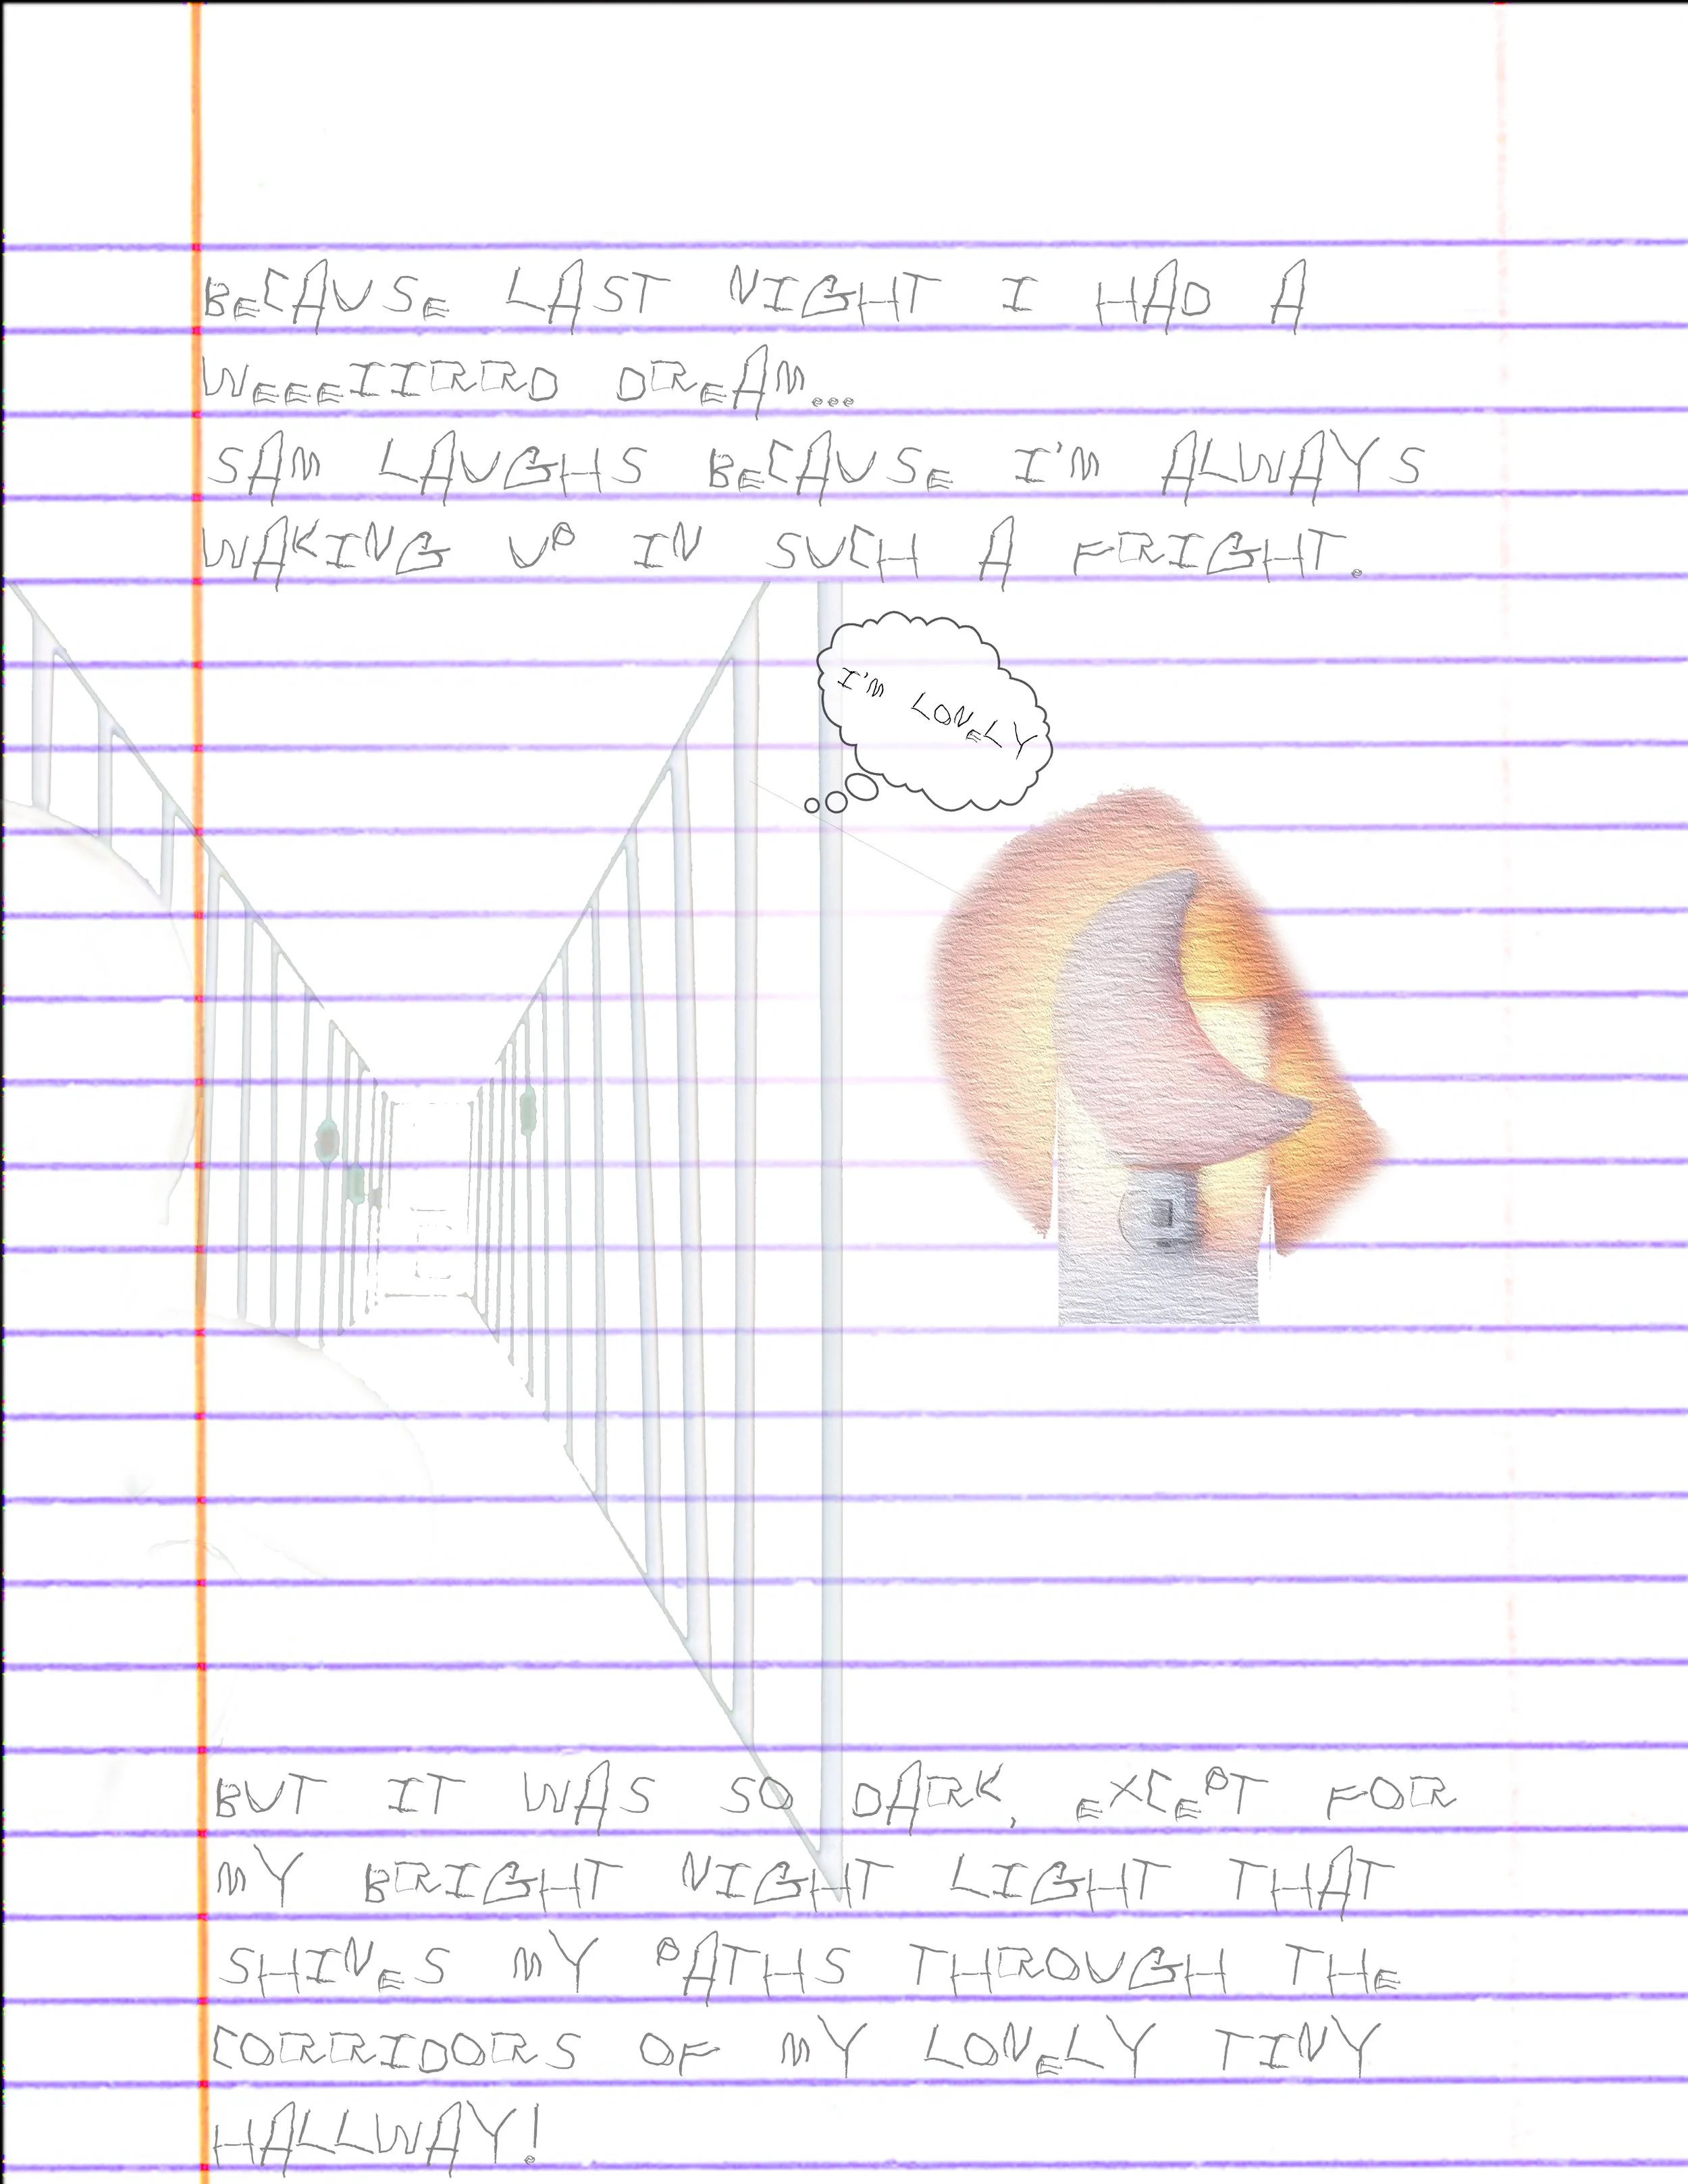 BECAUSE LAST NIGHT I HAD A
WEEEIIRRD DREAM...
SAM LAUGHS BECAUSE I'M ALWAYS
WAKING UP IN SUCH A FRIGHT.
I'M LONELY
BUT IT WAS SO DARK, EXCEPT FOR
MY BRIGHT NIGHT LIGHT THAT
SHINES MY PATHS THROUGH THE
CORRIDORS OF MY LONELY TINY
HALLWAY!